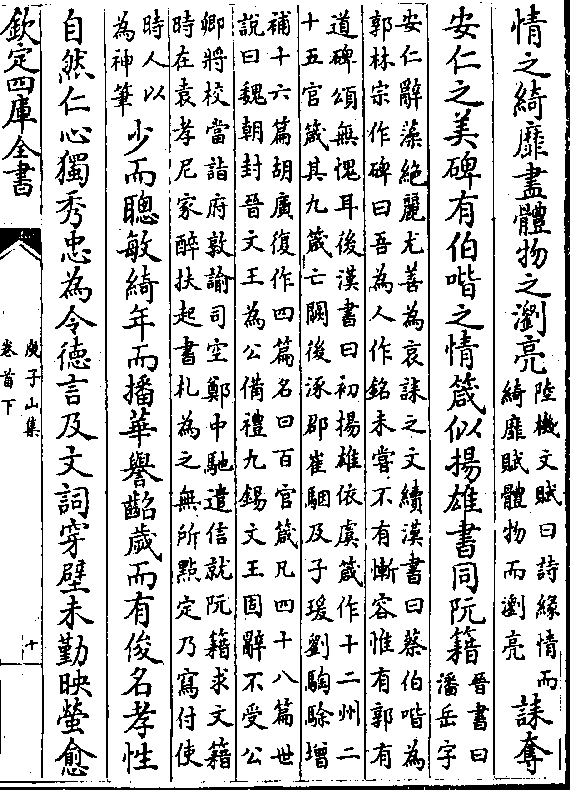 情之綺靡盡體物之瀏亮
陸機文賦曰詩緣情而
綺靡賦體物而瀏亮
誄奪
安仁之美碑有伯喈之情箴似揚雄書同阮籍
晉書曰
潘岳字
安仁辭藻絶麗尤善為哀誄之文續漢書曰蔡伯喈為
郭林宗作碑曰吾為人作銘未嘗不有慚容惟有郭有
道碑頌無愧耳後漢書曰初揚雄依虞箴作十二州二
十五官箴其九箴亡闕後涿郡崔駰及子瑗劉騊駼增
補十六篇胡廣復作四篇名曰百官箴凡四十八篇世
說曰魏朝封晉文王為公備禮九錫文王固辭不受公
卿將校當詣府敦諭司空鄭中馳遣信就阮籍求文籍
時在袁孝尼家醉扶起書札為之無所點定乃寫付使
時人以
為神筆
少而聰敏綺年而播華譽齠歲而有俊名孝性
自然仁心獨秀忠為令德言及文詞穿壁未勤映螢愈
欽定四庫全書
庾子山集
卷首下
十